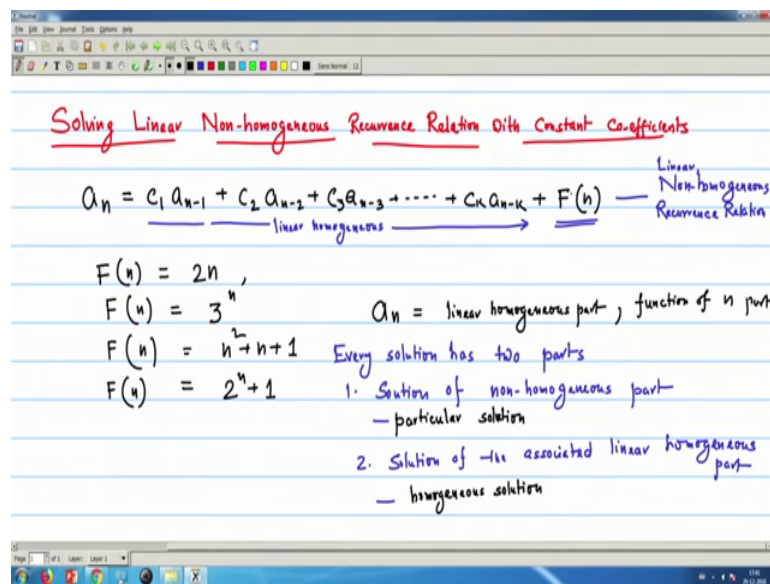 Xournal
File Edit View Journal Tools Options Help
Sans Normal 12
Solving Linear Non-homogeneous Recurrence Relation With Constant Co-efficients
aₙ = C₁ aₙ₋₁ + C₂ aₙ₋₂ + C₃ aₙ₋₃ + ···· + Cₖ aₙ₋ₖ + F(n) — Linear Non-homogeneous Recurrence Relation
linear homogeneous
F(n) = 2n ,
F(n) = 3ⁿ
F(n) = n² + n + 1
F(n) = 2ⁿ + 1
aₙ = linear homogeneous part , function of n part
Every solution has two parts
1. Soution of non-homogeneous part
— particular solution
2. Solution of the associated linear homogeneous part
— homogeneous solution
Page 1 of 1 Layer: Layer 1
17:41